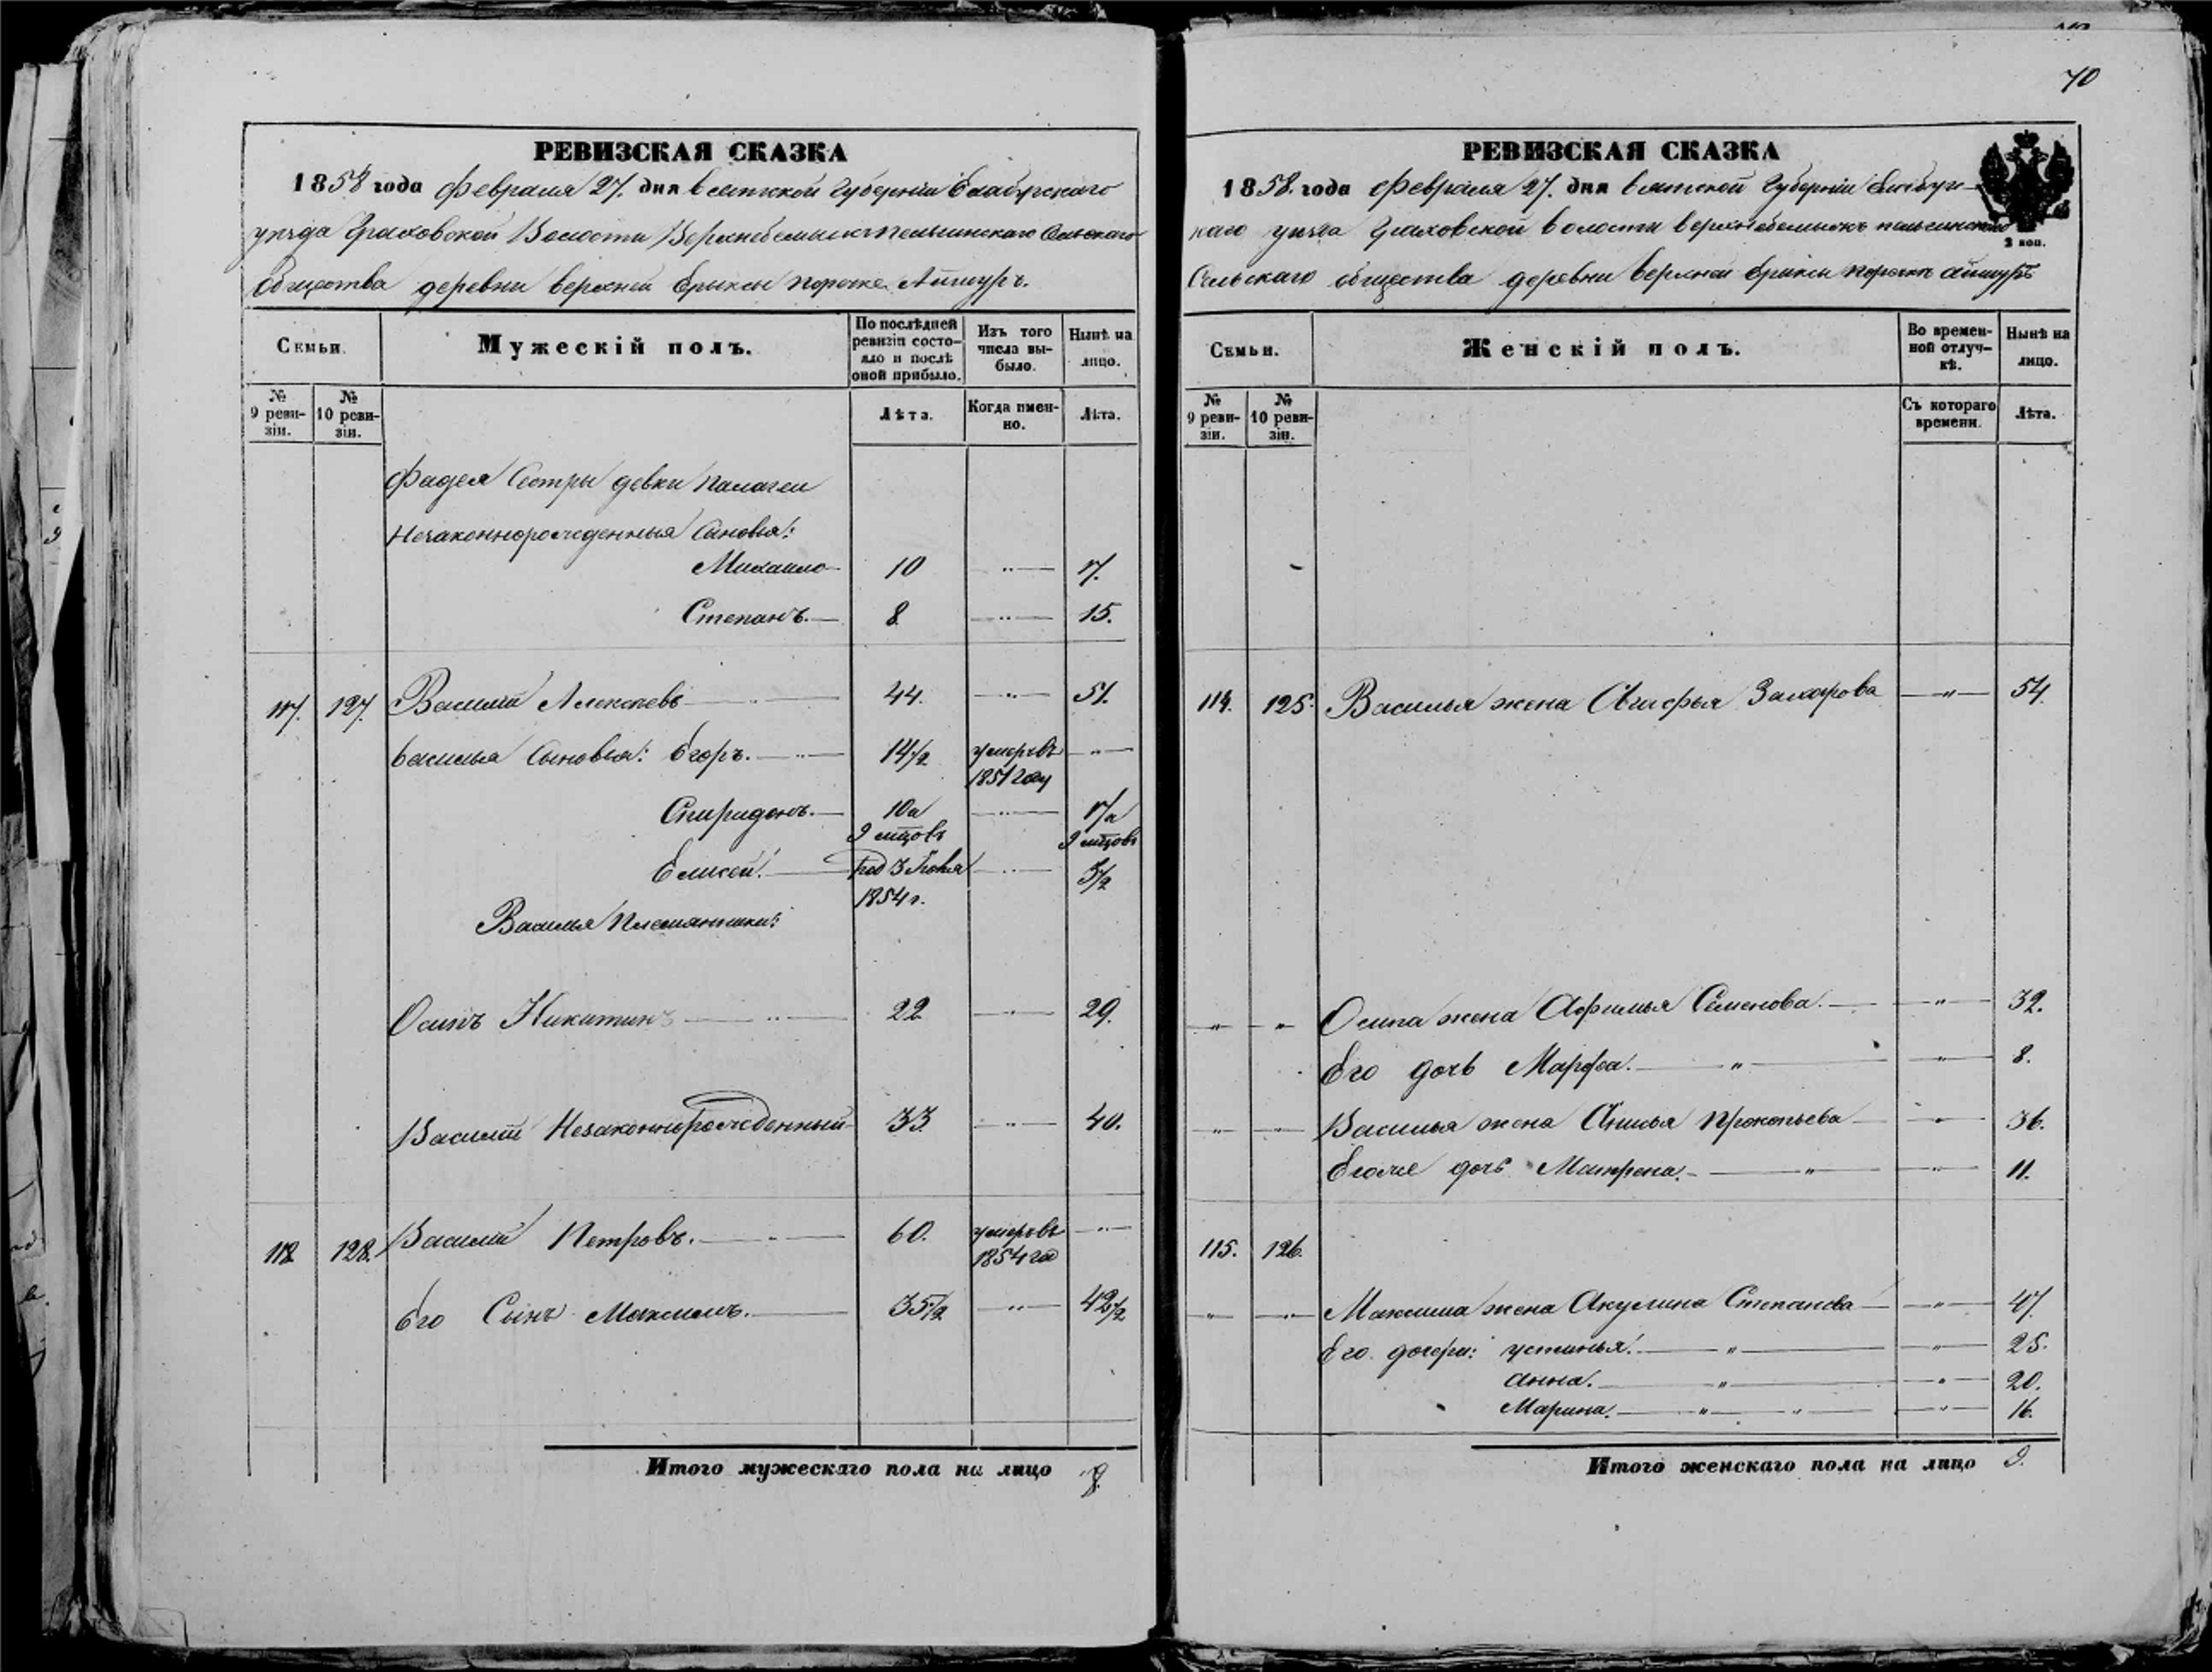 РЕВИЗСКАЯ СКАЗКА
1858 года Февраля 27. дня Вятской Губерніи Елабугскаго
уѣзда Граховской Волости Сельскаго
Общества деревни верхней Ерыксы порочке Айшуръ.
Семьи.
Мужескій полъ.
По послѣдней ревизіи состояло и послѣ оной прибыло.
Изъ того числа выбыло.
Нынѣ на лицо.
№ 9 ревизіи.
№ 10 ревизіи.
Лѣта.
Когда именно.
Лѣта.
Фадея Сестры девки Палагеи
Незаконнорожденныя Сыновья:
Михаило 10 17.
Степанъ. 8 15.
117. 127. Василій Алексѣевъ 44. 51.
Василья Сыновья: Егоръ. 14½ умеръ въ 1851 году
Спиридонъ. 10 и 9 мцовъ 17 и 9 мцовъ
Елисей. род 3 Іюня 1854 г. 3½
Василья Племянники:
Осипъ Никитинъ 22 29.
Василій Незаконнорожденный 33 40.
118 128. Василій Петровъ. 60. умеръ въ 1854 го
Его Сынъ Максимъ. 35½ 42½
Итого мужескаго пола на лицо 8.
70
РЕВИЗСКАЯ СКАЗКА
1858. года Февраля 27. дня Вятской Губерніи Елабуг-
скаго уѣзда Граховской волости
2 коп.
Сельскаго общества деревни верхней Ериксы порочке Айшуръ
Семьи.
Женскій полъ.
Во временной отлучкѣ.
Нынѣ на лицо.
№ 9 ревизіи.
№ 10 ревизіи.
Съ котораго времени.
Лѣта.
114. 125. Василья жена Агафья Захарова 54.
Осипа жена Афимья Семенова. 32.
Его дочь Марфа. 8.
Василья жена Анисья Прокопьева 36.
Егоже дочь Матрена. 11.
115. 126.
Максима жена Акулина Степанова 47.
Его дочери: Устинья. 25.
Анна. 20.
Марина. 16.
Итого женскаго пола на лицо 9.